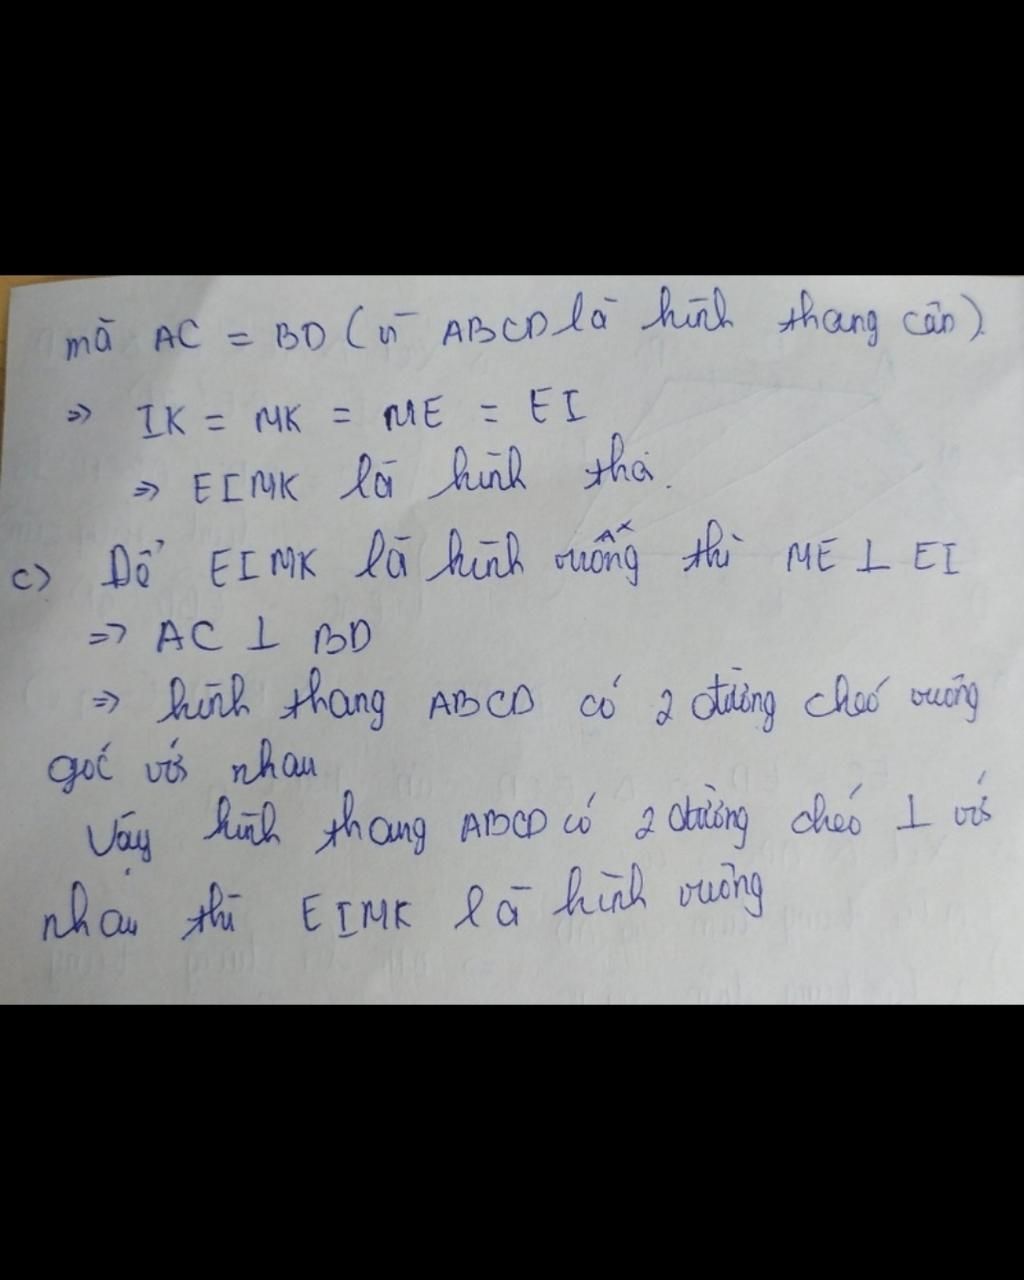 mà AC = BD (vì ABCD là hình thang cân).
=> IK = MK = ME = EI
=> EIMK là hình thoi.
c) Để EIMK là hình vuông thì ME ⊥ EI
=> AC ⊥ BD
=> hình thang ABCD có 2 đường chéo vuông
góc với nhau
Vậy hình thang ABCD có 2 đường chéo ⊥ với
nhau thì EIMK là hình vuông